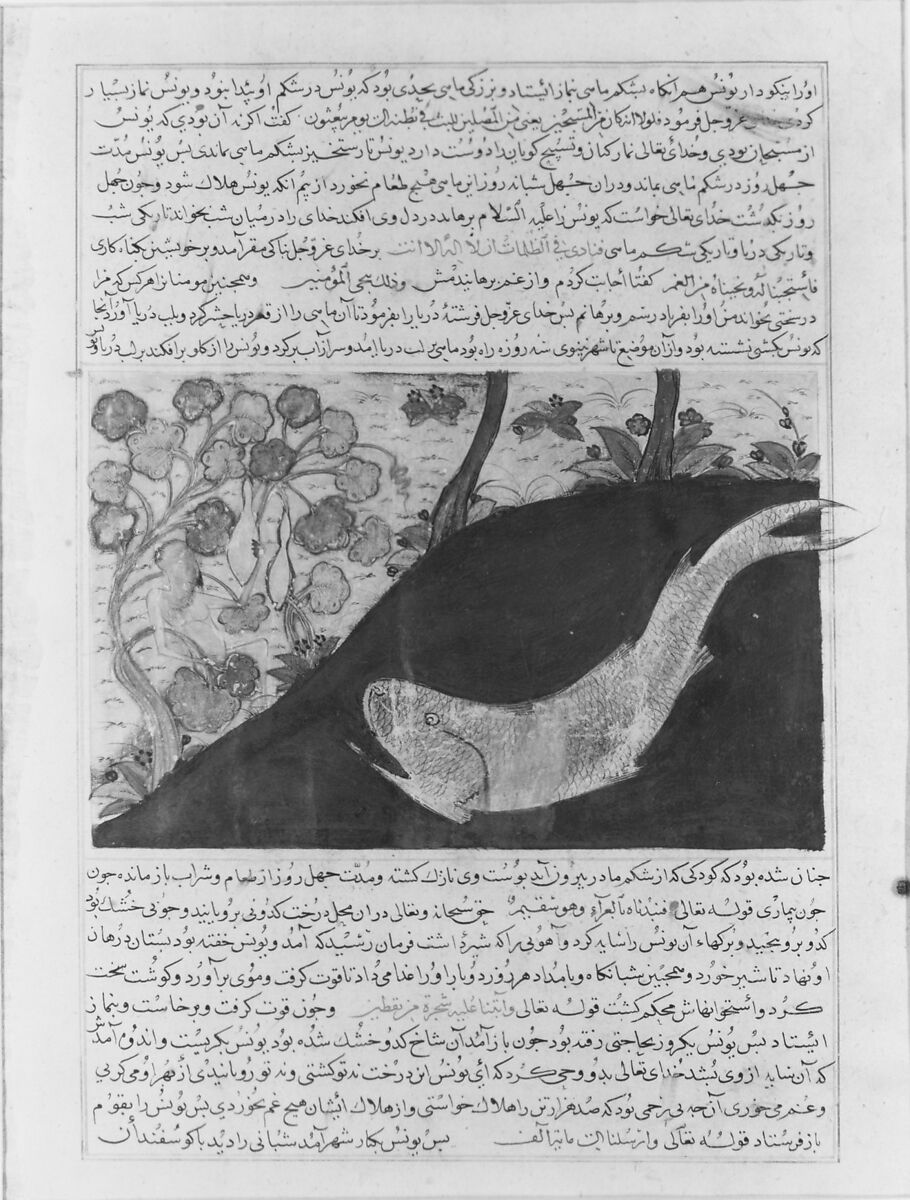 اورا نیکو دار یونس هم انکاه بشکم ماهی نماز ایستاد و بزرکی ماهی بحدی بود که یونس در شکم او پیدا نبود و یونس نماز بسیار
کردی عزوجل فرمود فلولا انه کان من المسبحین یعنی من المصلین للبث فی بطنه الی یوم یبعثون کفت اکر نه آن بودی که یونس
از مسبحان بودی و خدای تعالی نماز کنان و تسبیح کویان را دوست دارد یونس تا رستخیز بشکم ماهی ماندی پس یونس مدت
چهل روز در شکم ماهی بماند و در ان چهل شبانه روز این ماهی هیچ طعام نخورد از بیم انکه یونس هلاك شود و چون چهل
روز بکذشت خدای تعالی خواست که یونس را علیه السلام برهاند در دل وی افکند خدای را در میان شب بخواند تاریکی شب
و تاریکی دریا و تاریکی شکم ماهی فنادی فی الظلمات ان لا اله الا انت بر خدای عزوجل بناکی مقر آمد و بر خویشتن بکناه کاری
فاستجبنا له ونجیناه من الغم کفتا اجابت کردم و از غم برهانیدمش وذلك ننجی المؤمنین و همچنین مومنانرا هر کس که مرا
در سختی بخواند من اورا بفریاد رسم و برهانم پس خدای عزوجل فرشتهٔ دریا را بفرمود تا آن ماهی را از قعر دریا حشر کرد و بلب دریا آورد انجا
که یونس بکشتی نشسته بود و از آن موضع تا شهر نینوی سه روزه راه بود ماهی بر لب دریا امد و سر از آب بر کرد و یونس را از کلو بر افکند بر لب دریا و یونس
چنان شده بود که کودکی که از شکم مادر بیرون آید پوست وی نازك کشته و مدت چهل روز از طعام و شراب باز مانده چون
چون بیماری قوله تعالی فنبذناه بالعراء وهو سقیم حق سبحانه و تعالی در ان محل درخت کدوئی برویانید و چوبی خشك بود
کدو برو بیچید و برکهاء آن یونس را سایه کرد و آهوئی را که شیر داشت فرمان رسید که آمد و یونس خفته بود پستان در دهان
او نهاد تا شیر خورد و همچنین شبانکاه و بامداد هر روز دو بار اورا غذا می داد تا قوت کرفت و موی بر آورد و کوشت سخت
کرد و استخوانهاش محکم کشت قوله تعالی وانبتنا علیه شجرة من یقطین و چون قوت کرفت و برخاست و بنماز
ایستاد پس یونس یکروز بحاجتی رفته بود چون باز آمد آن شاخ کدو خشك شده بود یونس بکریست و اندوه آمدش
که آن سایه از وی بشد خدای تعالی بدو وحی کرد که ای یونس این درخت نه تو کشتی و نه تو رویانیدی از بهر او می کریی
و غم می خوری آن چه بی رحمی بود که صد هزار تن را هلاك خواستی و از هلاك ایشان هیچ غم نخوردی پس یونس را بقوم
باز فرستاد قوله تعالی وارسلناه الی مایة الف پس یونس بکنار شهر آمد شبانی را دید با کوسفندان